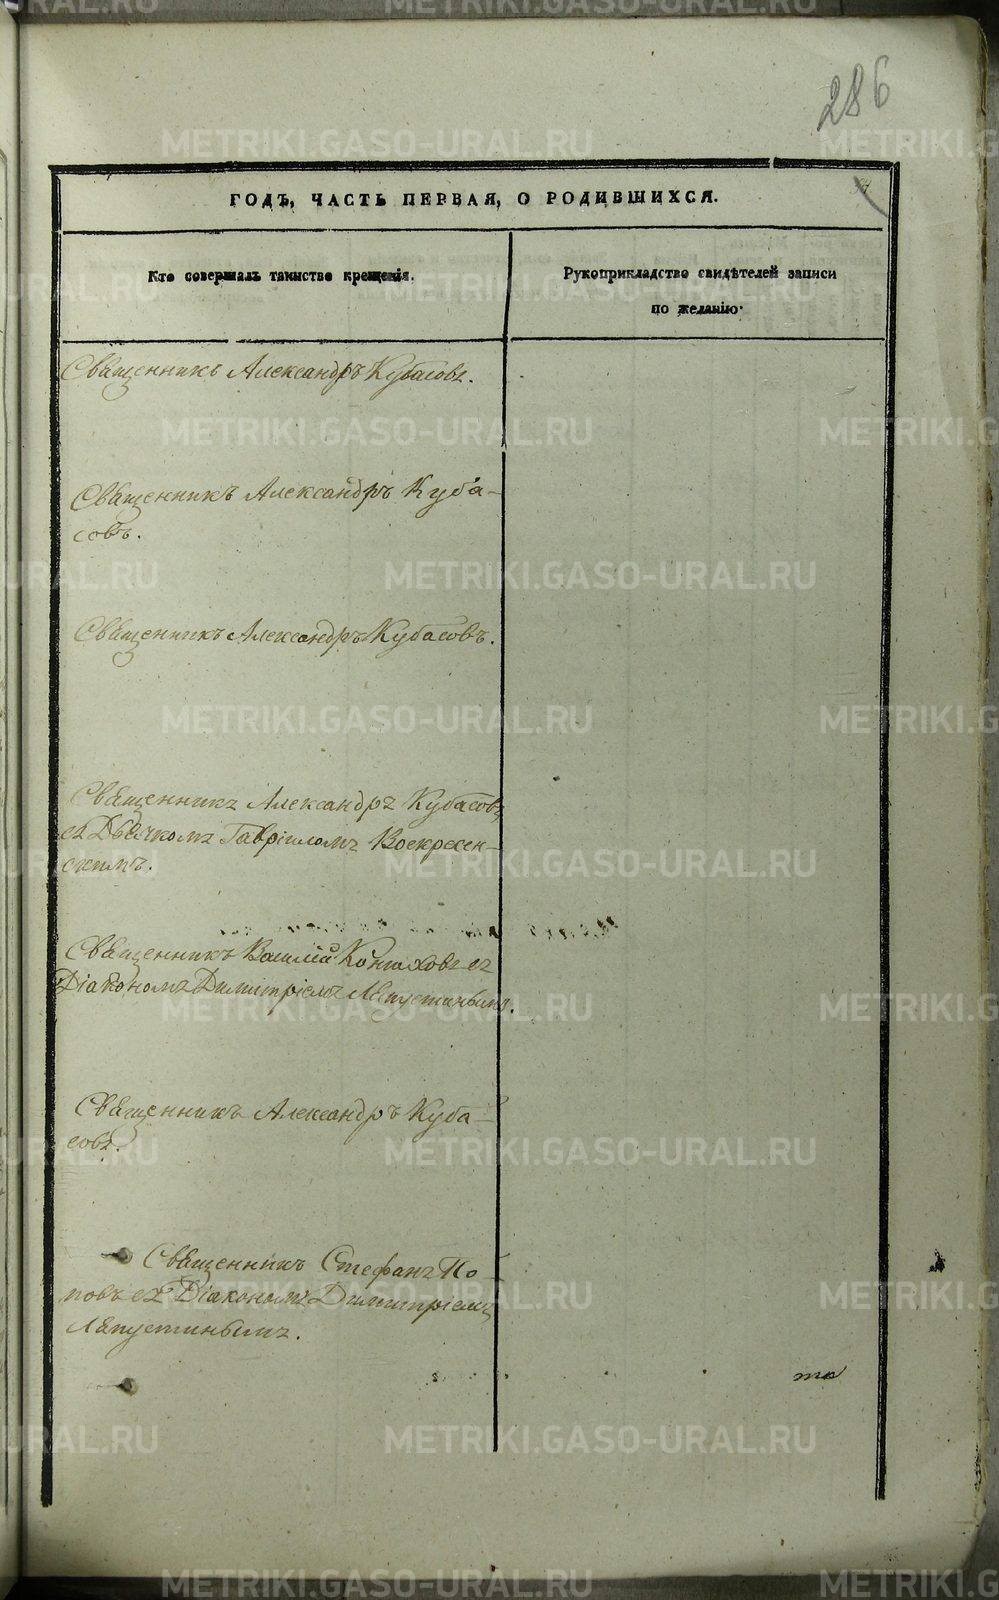 286
ГОДЪ, ЧАСТЬ ПЕРВАЯ, О РОДИВШИХСЯ.
Кто совершалъ таинство крещенія.
Рукоприкладство свидѣтелей записи
по желанію.
Священникъ Александръ Кубасовъ.
Священникъ Александръ Куба-
совъ.
Священникъ Александръ Кубасовъ.
Священникъ Александръ Кубасовъ
съ Дьячкомъ Гавріиломъ Воскресен-
скимъ.
Священникъ Василій съ
Діакономъ Димитріемъ Ляпустинымъ.
Священникъ Александръ Куба-
совъ.
Священникъ Стефанъ По-
повъ съ Діакономъ Димитріемъ
Ляпустинымъ.
METRIKI.GASO-URAL.RU